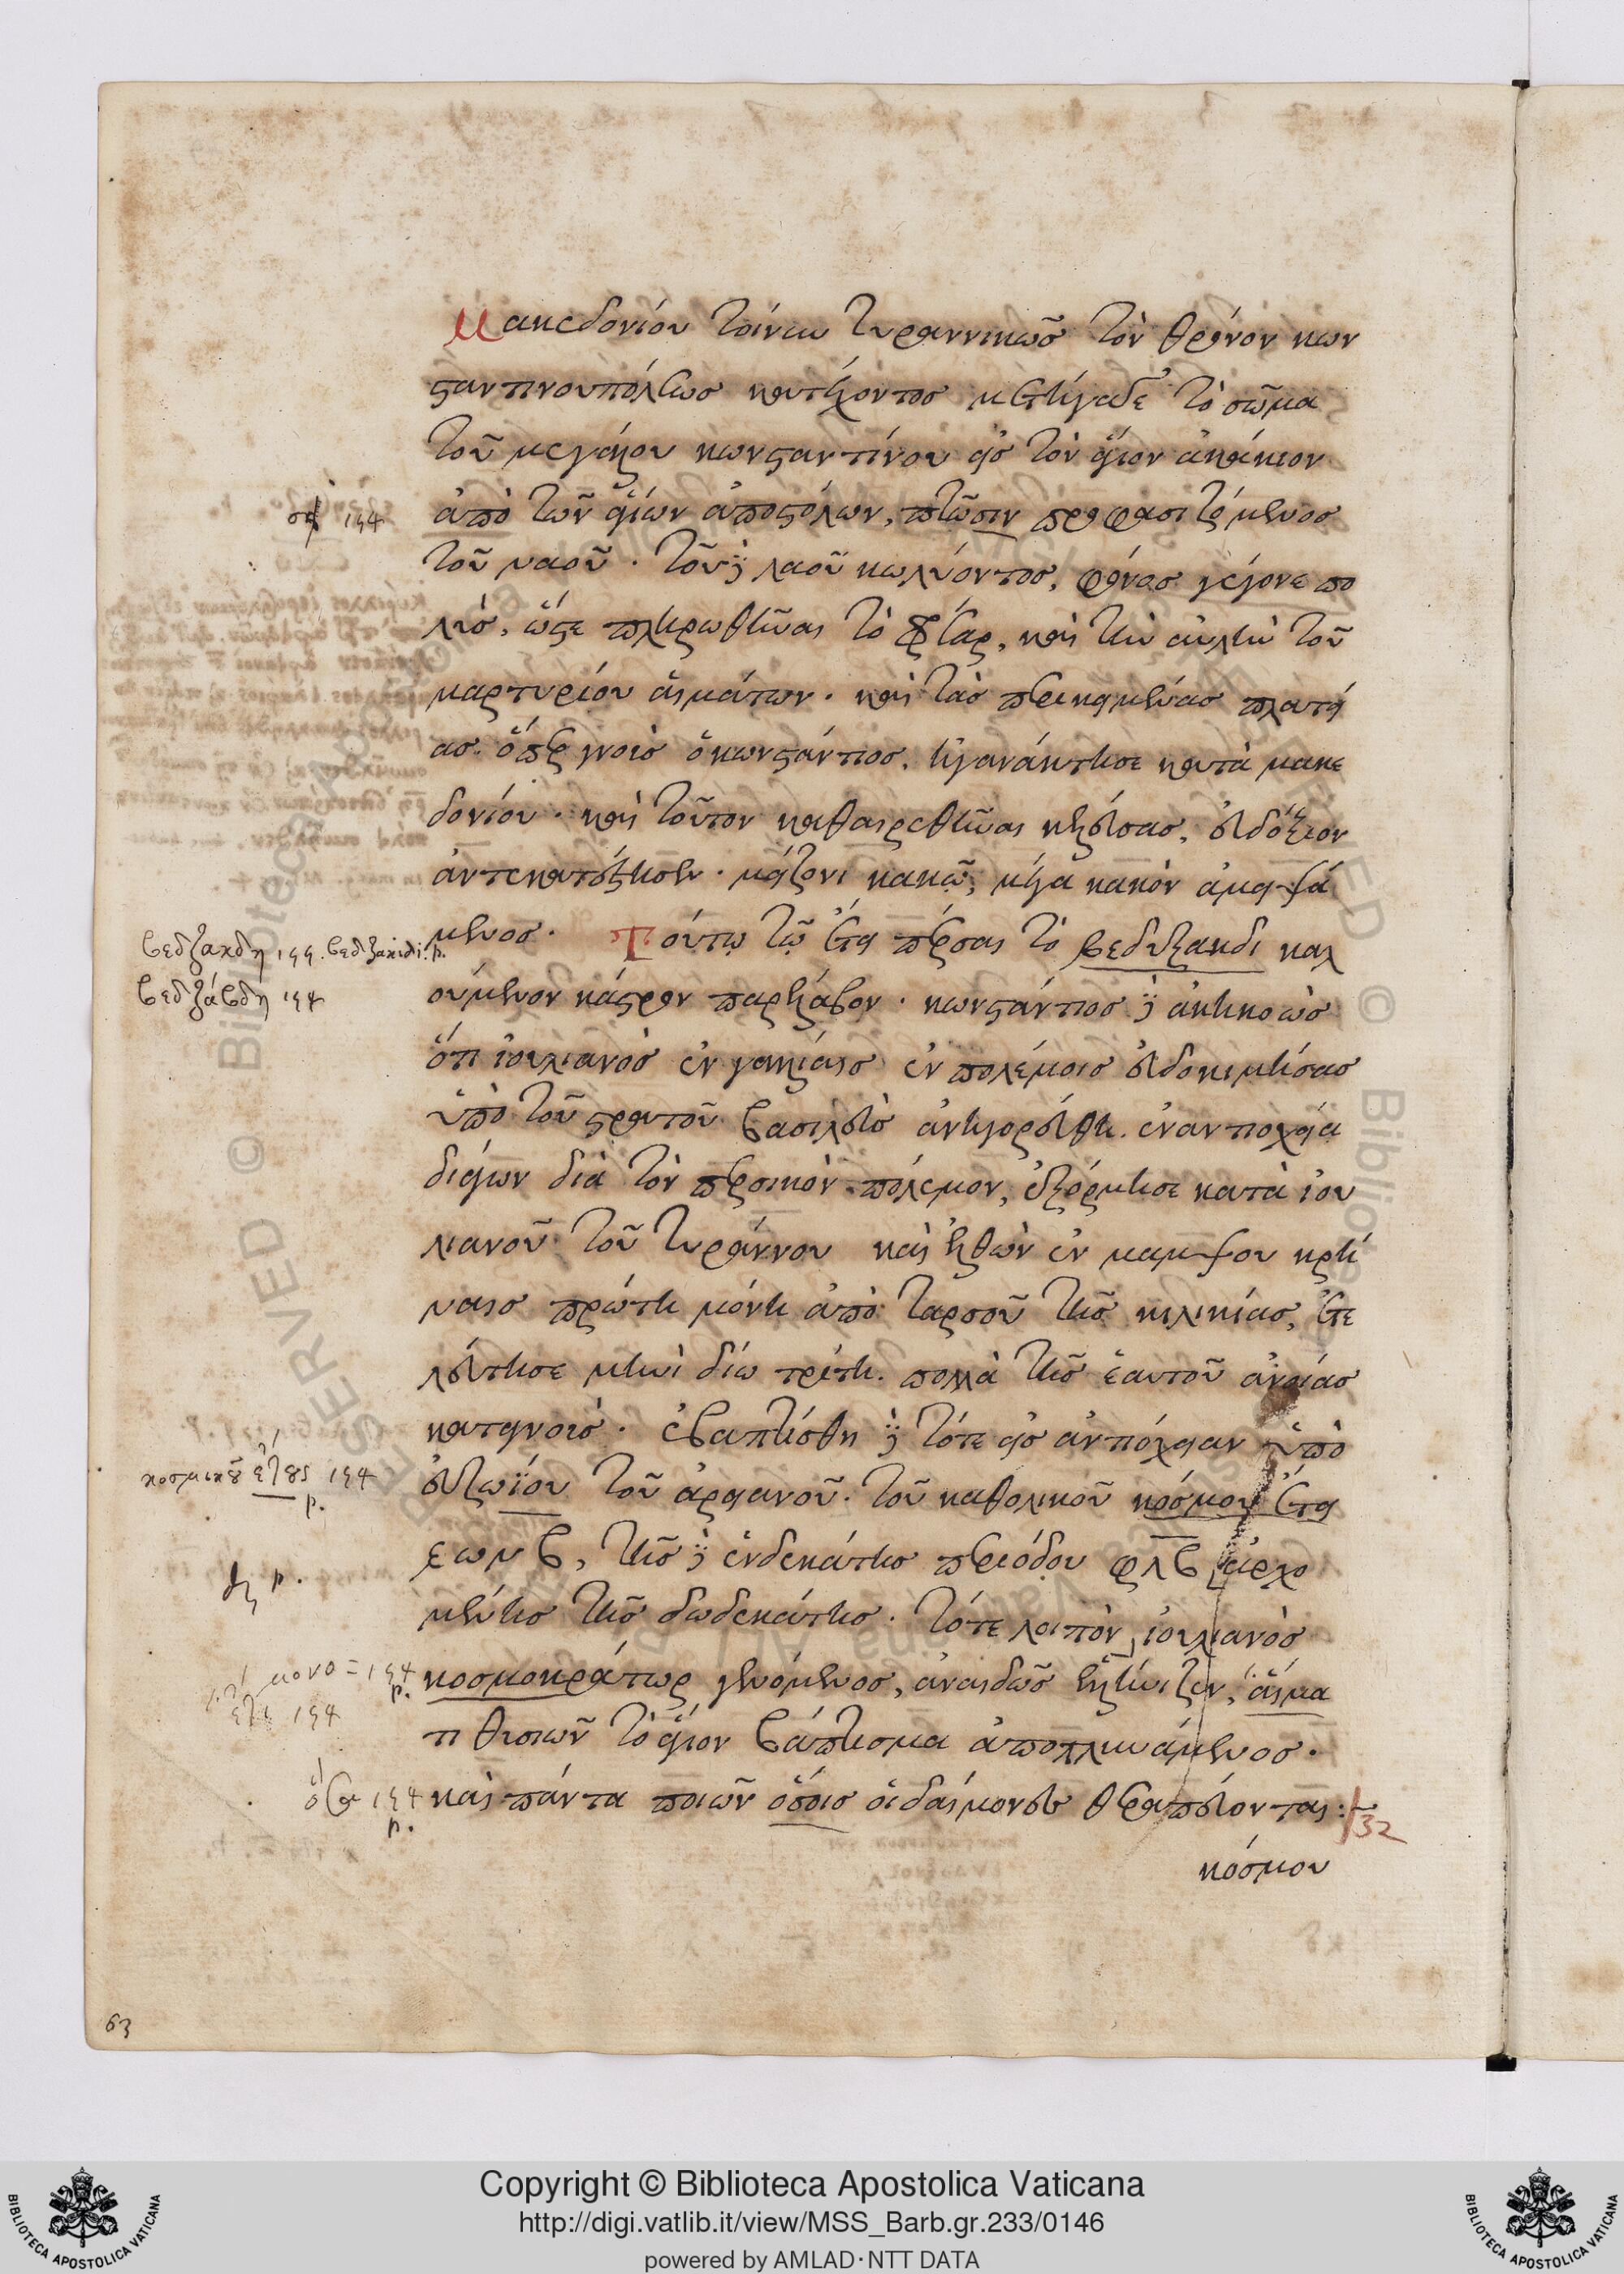 Μακεδονίου τοίνυν τυραννικῶς τὸν θρόνον κων
σταντινουπόλεως κατέχοντος μετήγαγε τὸ σῶμα
τοῦ μεγάλου κωνσταντίνου εἰς τὸν ἅγιον ἀκάκιον
ἀπὸ τῶν ἁγίων ἀποστόλων, πτῶσιν προφασιζόμενος
τοῦ ναοῦ. τοῦ δὲ λαοῦ κωλύοντος, φόνος γέγονε πο
λύς, ὥστε πληρωθῆναι τὸ φρέαρ, καὶ τὴν αὐλὴν τοῦ
μαρτυρίου αἱμάτων. καὶ τὰς περικειμένας πλατεί
ας. ὅπερ γνοὺς ὁ κωνστάντιος, ἠγανάκτησε κατὰ μακε
δονίου. καὶ τοῦτον καθαιρεθῆναι κελεύσας, εὐδόξιον
ἀντικατέστησεν. μείζονι κακῷ, μέγα κακὸν ἀμειψά
μενος. Τούτῳ τῷ ἔτει πέρσαι τὸ βεδυζακδι καλ
ούμενον κάστρον παρέλαβον. κωνστάντιος δὲ ἀκηκοὼς
ὅτι ἰουλιανὸς ἐν γαλλίαις ἐν πολέμοις εὐδοκιμήσας
ὑπὸ τοῦ στρατοῦ βασιλεὺς ἀνηγορεύθη. ἐν ἀντιοχείᾳ
διάγων διὰ τὸν περσικὸν πόλεμον, ἐξόρμησε κατὰ ἰου
λιανοῦ τοῦ τυράννου καὶ ἐλθὼν ἐν μαμψου κρή
ναις πρώτη μόνη ἀπὸ ταρσοῦ τῆς κιλικίας, ἐτε
λεύτησε μηνὶ δίω τρίτη. πολλὰ τῆς ἑαυτοῦ ἀνοίας
καταγνούς. ἐβαπτίσθη δὲ τότε εἰς ἀντιόχειαν ὑπὸ
εὐζωΐου τοῦ ἀρειανοῦ. τοῦ καθολικοῦ κόσμου ἔτει
εωνβ, τῆς δὲ ἑνδεκάτης περιόδου φλβ ἀρχο
μένης τῆς δωδεκάτης. τότε λοιπὸν ἰουλιανὸς
κοσμοκράτωρ γενόμενος, ἀναιδῶς ἑλλήνιζεν, αἵμα
τι θυσιῶν τὸ ἅγιον βάπτισμα ἀποπλυνάμενος.
καὶ πάντα ποιῶν ὁποίοις οἱ δαίμονες θεραπεύονται:
132
κόσμου
194
βεδζακδη 199. βεδζακιδι: p.
βεδζάβδη 194
κοσμικοῦ ἔτους 194
p.
p.
μονο= 194
p.
194
194
p.
63
RESERVED © Biblioteca Apostolica Vaticana
Copyright © Biblioteca Apostolica Vaticana
http://digi.vatlib.it/view/MSS_Barb.gr.233/0146
powered by AMLAD·NTT DATA
BIBLIOTECA APOSTOLICA VATICANA
BIBLIOTECA APOSTOLICA VATICANA